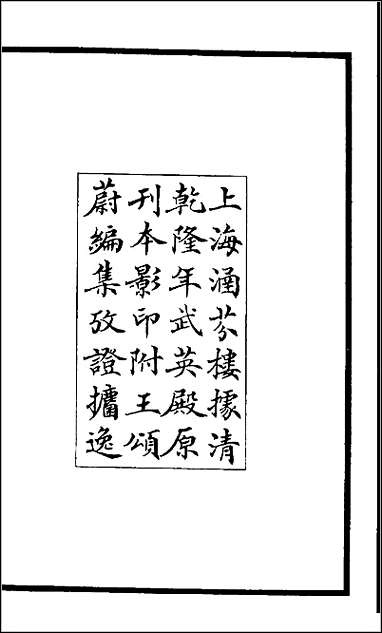 上海涵芬樓據清
乾隆年武英殿原
刊本影印附王頌
蔚編集攷證攟逸